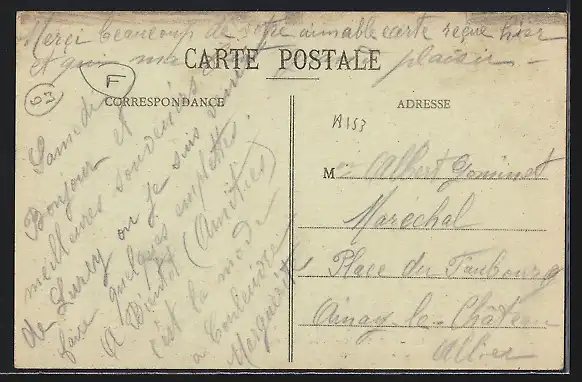 Merci beaucoup de votre aimable carte reçue hier
et qui m'a plaisir -
CARTE POSTALE
F
93
CORRESPONDANCE
ADRESSE
A153
Samedi
Bonjour et
meilleurs souvenirs
de Lurcy ou je suis venue
faire quelques emplettes.
A Bientôt (Amitiés)
c'est la mode
a Couleuvre
Marguerite
Mr Albert Gominet
Maréchal
Place du Faubourg
Ainay-le-Château
Allier